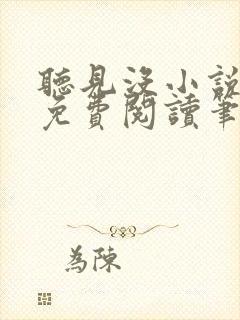 聽見沒小說
免費閱讀筆
為陳